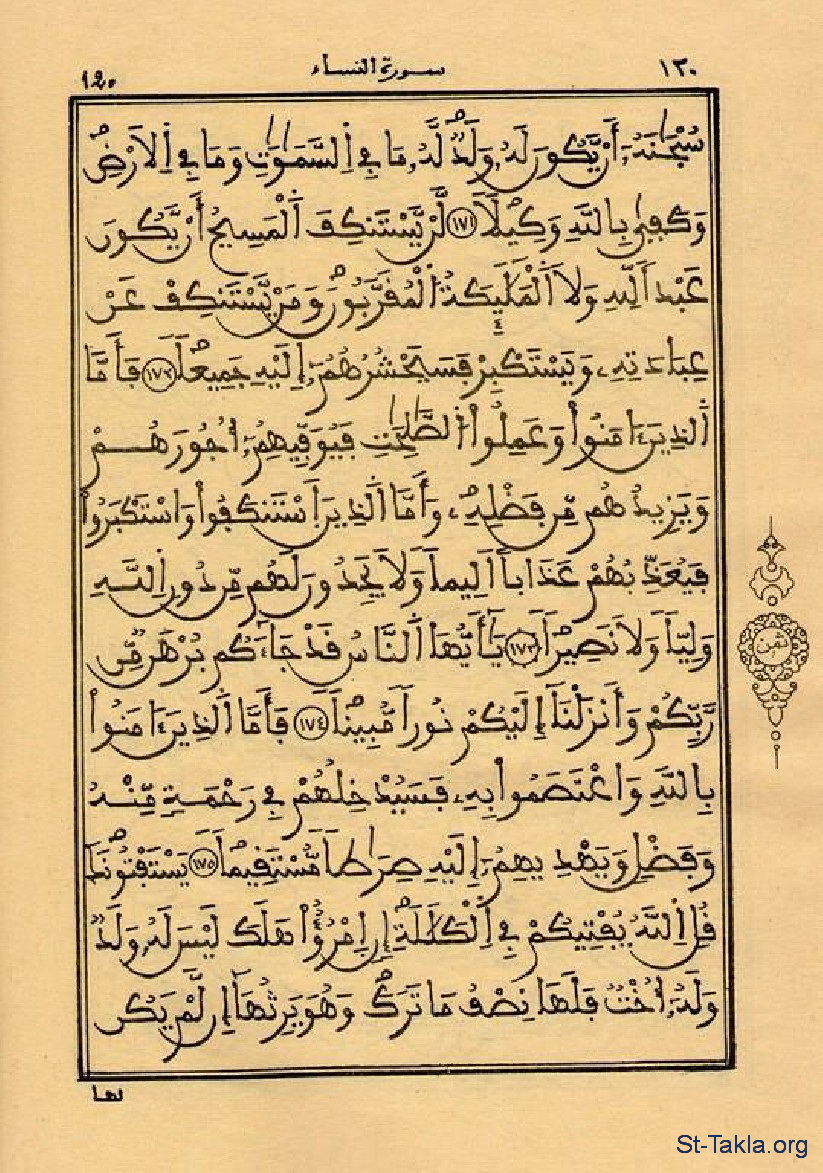 ١٣٠ سورة النساء ١٢٥
سُبْحَٰنَهُۥٓ أَنْ يَّكُونَ لَهُۥ وَلَدٌ لَّهُۥ مَا فِے اِ۬لسَّمَٰوَٰتِ وَمَا فِے اِ۬لَارْضِ
وَكَف۪ىٰ بِاللَّهِ وَكِيلاً ١٧١ لَّنْ يَّسْتَنكِفَ اَ۬لْمَسِيحُ أَنْ يَّكُونَ
عَبْداً لِّلهِ وَلَا اَ۬لْمَلَٰٓئِكَةُ اُ۬لْمُقَرَّبُونَ وَمَنْ يَّسْتَنكِفْ عَنْ
عِبَادَتِهِۦ وَيَسْتَكْبِرْ فَسَيَحْشُرُهُمُۥٓ إِلَيْهِ جَمِيعاً ١٧٢ فَأَمَّا
اَ۬لذِينَ ءَامَنُواْ وَعَمِلُواْ اُ۬لصَّٰلِحَٰتِ فَيُوَفِّيهِمُۥٓ أُجُورَهُمْ
وَيَزِيدُهُم مِّن فَضْلِهِۦ وَأَمَّا اَ۬لذِينَ اَ۪سْتَنكَفُواْ وَاسْتَكْبَرُواْ
فَيُعَذِّبُهُمْ عَذَاباً أَلِيماً وَلَا يَجِدُونَ لَهُم مِّن دُونِ اِ۬للَّهِ
وَلِيّاً وَلَا نَصِيراً ١٧٣ يَٰٓأَيُّهَا اَ۬لنَّاسُ قَدْ جَآءَكُم بُرْهَٰنٌ مِّن
رَّبِّكُمْ وَأَنزَلْنَآ إِلَيْكُمْ نُوراً مُّبِيناً ١٧٤ فَأَمَّا اَ۬لذِينَ ءَامَنُواْ
بِاللَّهِ وَاعْتَصَمُواْ بِهِۦ فَسَيُدْخِلُهُمْ فِے رَحْمَةٍ مِّنْهُ
وَفَضْلٍ وَيَهْدِيهِمُۥٓ إِلَيْهِ صِرَٰطاً مُّسْتَقِيماً ١٧٥ يَسْتَفْتُونَكَ
قُلِ اِ۬للَّهُ يُفْتِيكُمْ فِے اِ۬لْكَلَٰلَةِ إِنِ اِ۪مْرُؤٌاْ هَلَكَ لَيْسَ لَهُۥ وَلَدٌ
وَلَهُۥٓ أُخْتٌ فَلَهَا نِصْفُ مَا تَرَكَ وَهُوَ يَرِثُهَآ إِن لَّمْ يَكُن
لها
ثمن
St-Takla.org